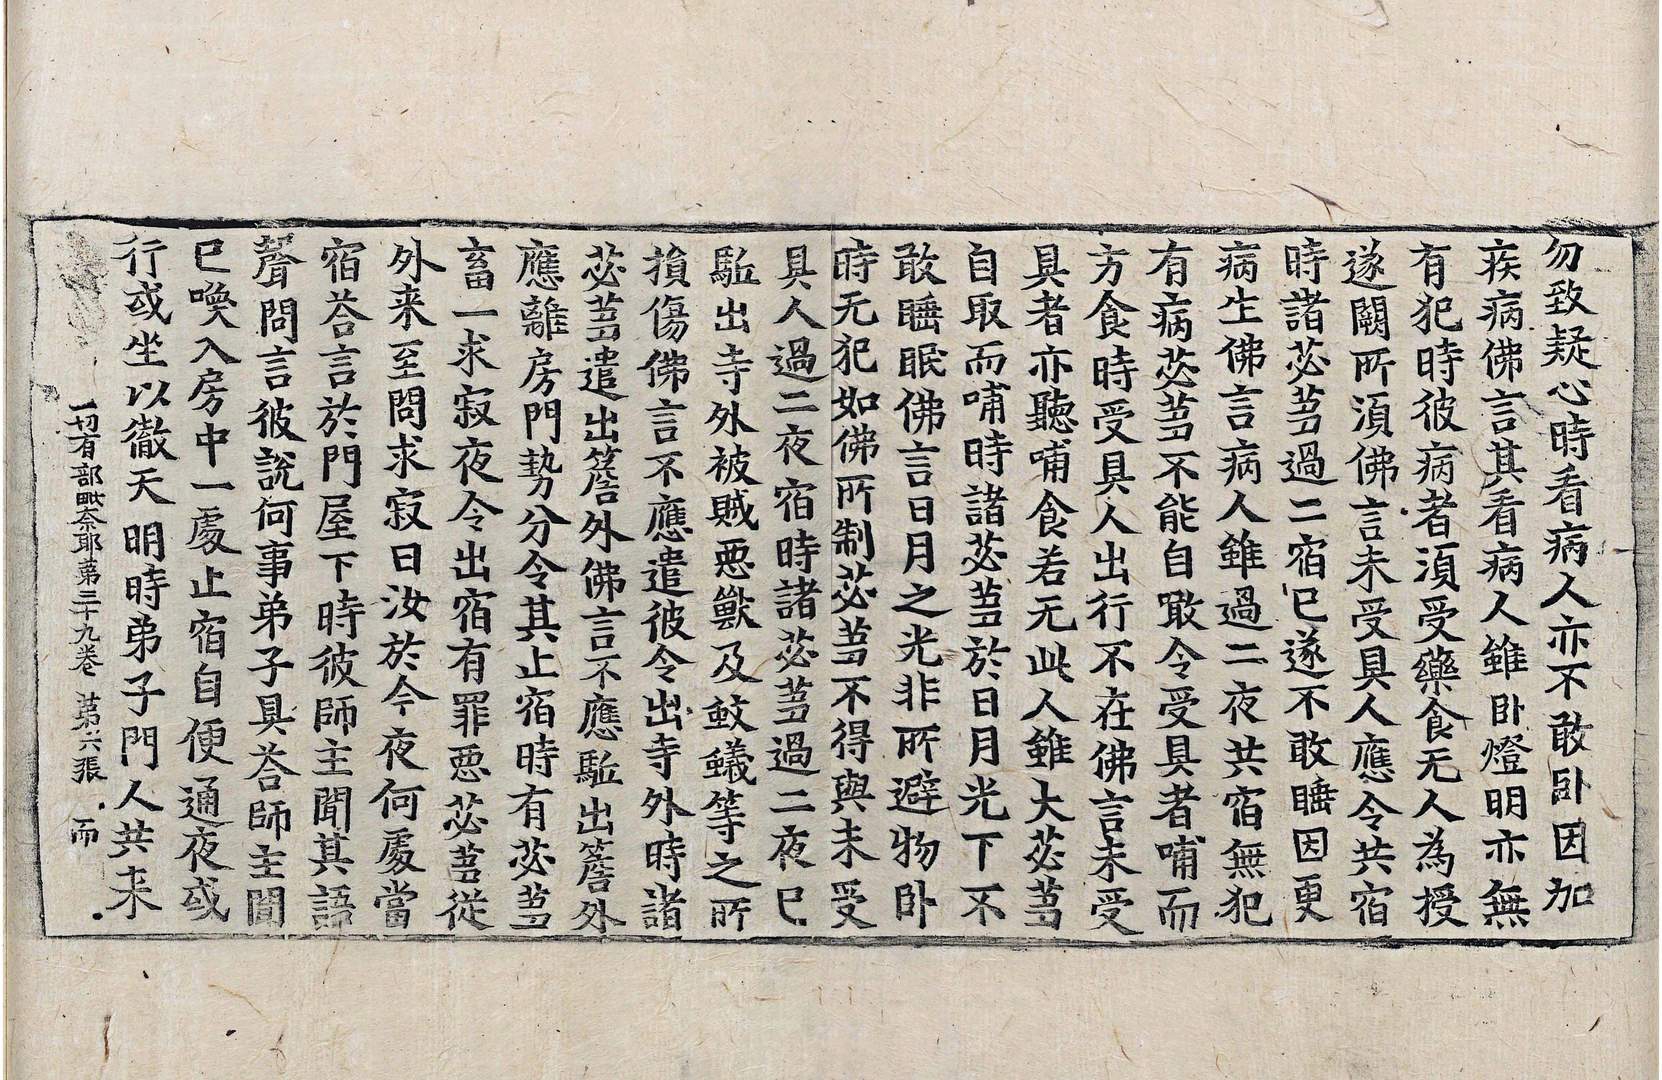 勿致疑心時看病人亦不敢卧因加
疾病佛言其看病人雖卧燈明亦無
有犯時彼病者湏受藥食无人為授
遂闕所湏佛言未受具人應令共宿
時諸苾蒭過二宿已遂不敢睡因更
病生佛言病人雖過二夜共宿無犯
有病苾蒭不能自取令受具者哺而
方食時受具人出行不在佛言未受
具者亦聽哺食若无此人雖大苾蒭
自取而哺時諸苾蒭於日月光下不
敢睡眠佛言日月之光非所避物卧
時无犯如佛所制苾蒭不得與未受
具人過二夜宿時諸苾蒭過二夜已
駈出寺外被賊惡獸及蚊蟻等之所
損傷佛言不應遣彼令出寺外時諸
苾蒭遣出簷外佛言不應駈出簷外
應離房門勢分令其止宿時有苾蒭
畜一求寂夜令出宿有罪惡苾蒭從
外来至問求寂曰汝於今夜何處當
宿荅言於門屋下時彼師主聞其語
聲問言彼說何事弟子具荅師主聞
已喚入房中一處止宿自便通夜或
行或坐以徹天明時弟子門人共来
一切有部毗奈耶第三十九卷 第六張 而